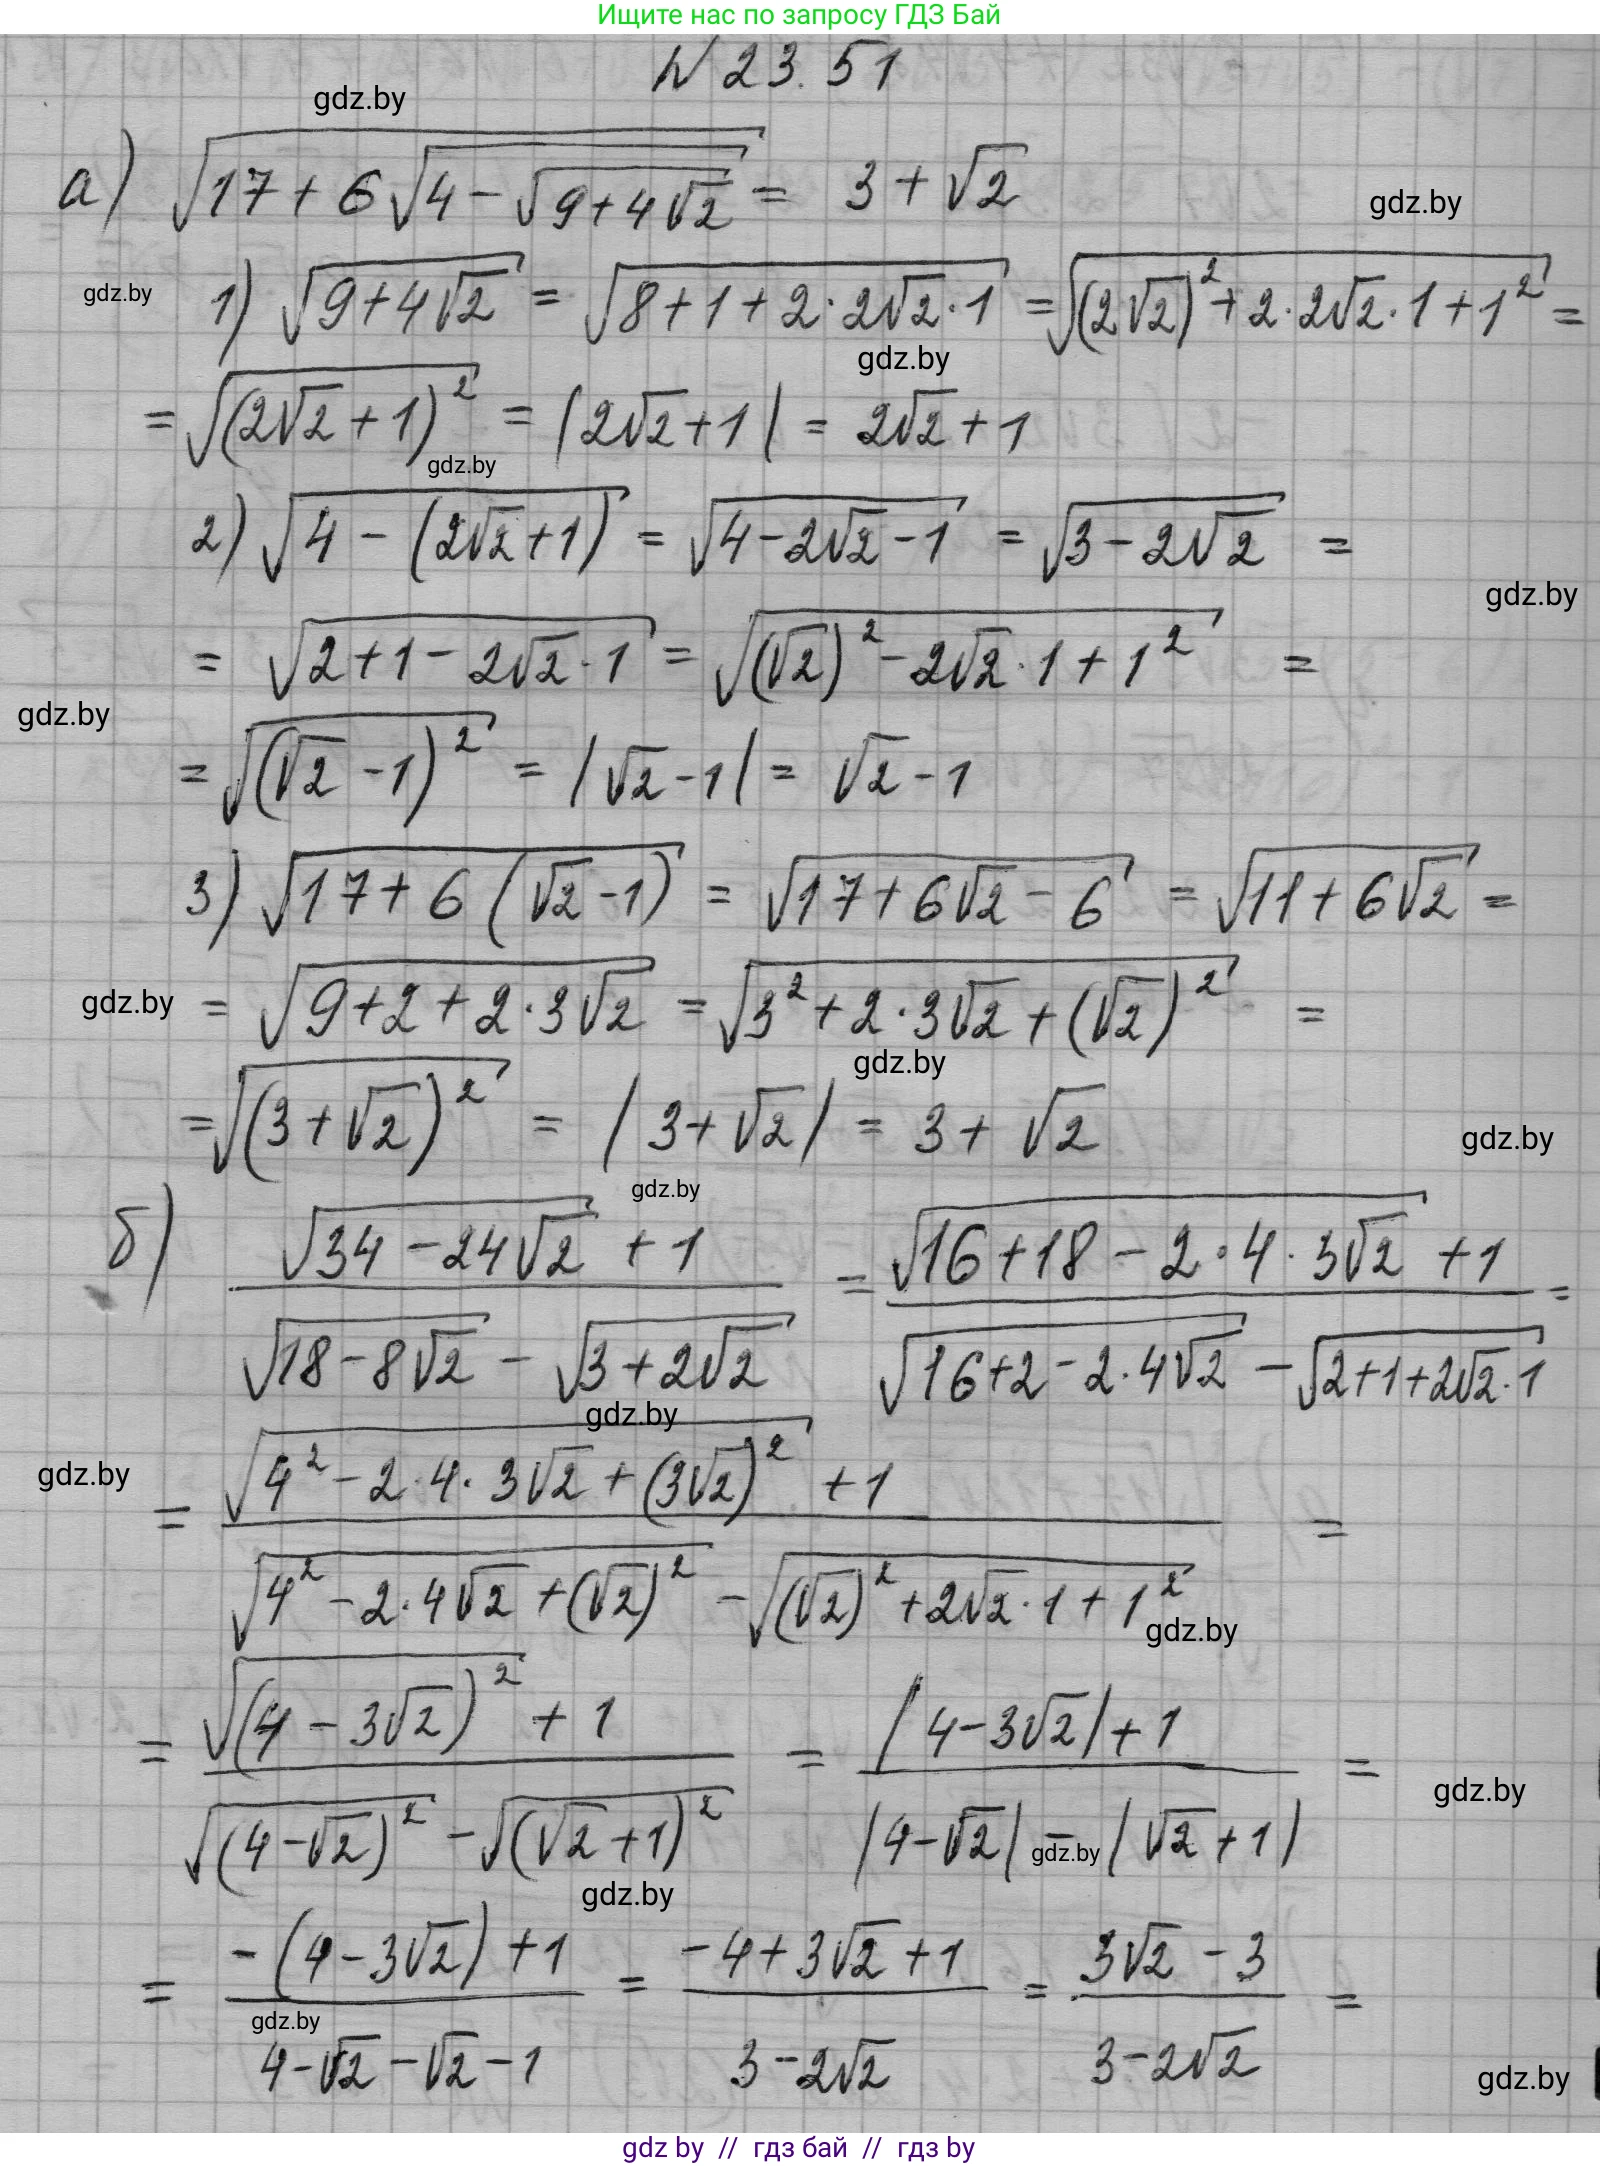 Ищите нас по запросу ГДЗ Бай
N 23.51
gdz.by
а) √(17 + 6√(4 - √(9 + 4√2))) = 3 + √2
gdz.by
gdz.by
1) √(9 + 4√2) = √(8 + 1 + 2·2√2·1) = √((2√2)² + 2·2√2·1 + 1²) =
gdz.by
= √((2√2 + 1)²) = |2√2 + 1| = 2√2 + 1
gdz.by
2) √(4 - (2√2 + 1)) = √(4 - 2√2 - 1) = √(3 - 2√2) =
gdz.by
= √(2 + 1 - 2√2·1) = √((√2)² - 2√2·1 + 1²) =
gdz.by
= √((√2 - 1)²) = |√2 - 1| = √2 - 1
3) √(17 + 6(√2 - 1)) = √(17 + 6√2 - 6) = √(11 + 6√2) =
gdz.by
= √(9 + 2 + 2·3√2) = √(3² + 2·3√2 + (√2)²) =
gdz.by
= √((3 + √2)²) = |3 + √2| = 3 + √2
gdz.by
gdz.by
б) (√(34 - 24√2) + 1) / (√(18 - 8√2) - √(3 + 2√2)) = (√(16 + 18 - 2·4·3√2) + 1) / (√(16 + 2 - 2·4√2) - √(2 + 1 + 2√2·1)) =
gdz.by
gdz.by
= (√(4² - 2·4·3√2 + (3√2)²) + 1) / (√(4² - 2·4√2 + (√2)²) - √((√2)² + 2√2·1 + 1²)) =
gdz.by
= (√((4 - 3√2)²) + 1) / (√((4 - √2)²) - √((√2 + 1)²)) = (|4 - 3√2| + 1) / (|4 - √2| - |√2 + 1|) =
gdz.by
gdz.by
gdz.by
= (-(4 - 3√2) + 1) / (4 - √2 - √2 - 1) = (-4 + 3√2 + 1) / (3 - 2√2) = (3√2 - 3) / (3 - 2√2) =
gdz.by
gdz.by
gdz by // гдз бай // гдз by